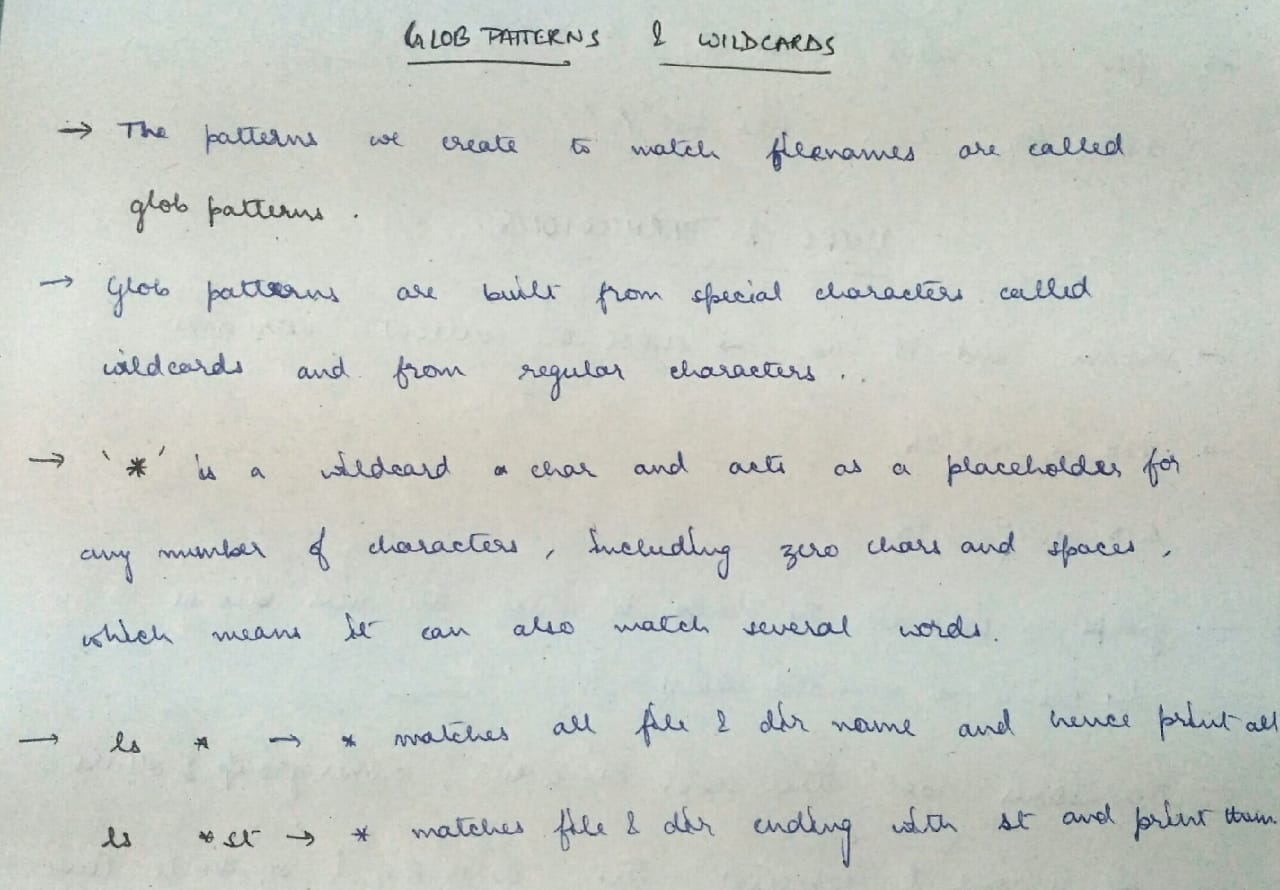 GLOB PATTERNS & WILDCARDS
→ The patterns we create to match filenames are called
glob patterns.
→ Glob patterns are built from special characters called
wildcards and from regular characters..
→ '*' is a wildcard char and acts as a placeholder for
any number of characters, including zero chars and spaces,
which means it can also match several words.
→ ls * → * matches all file & dir name and hence print all
ls *st → * matches file & dir ending with st and print them.